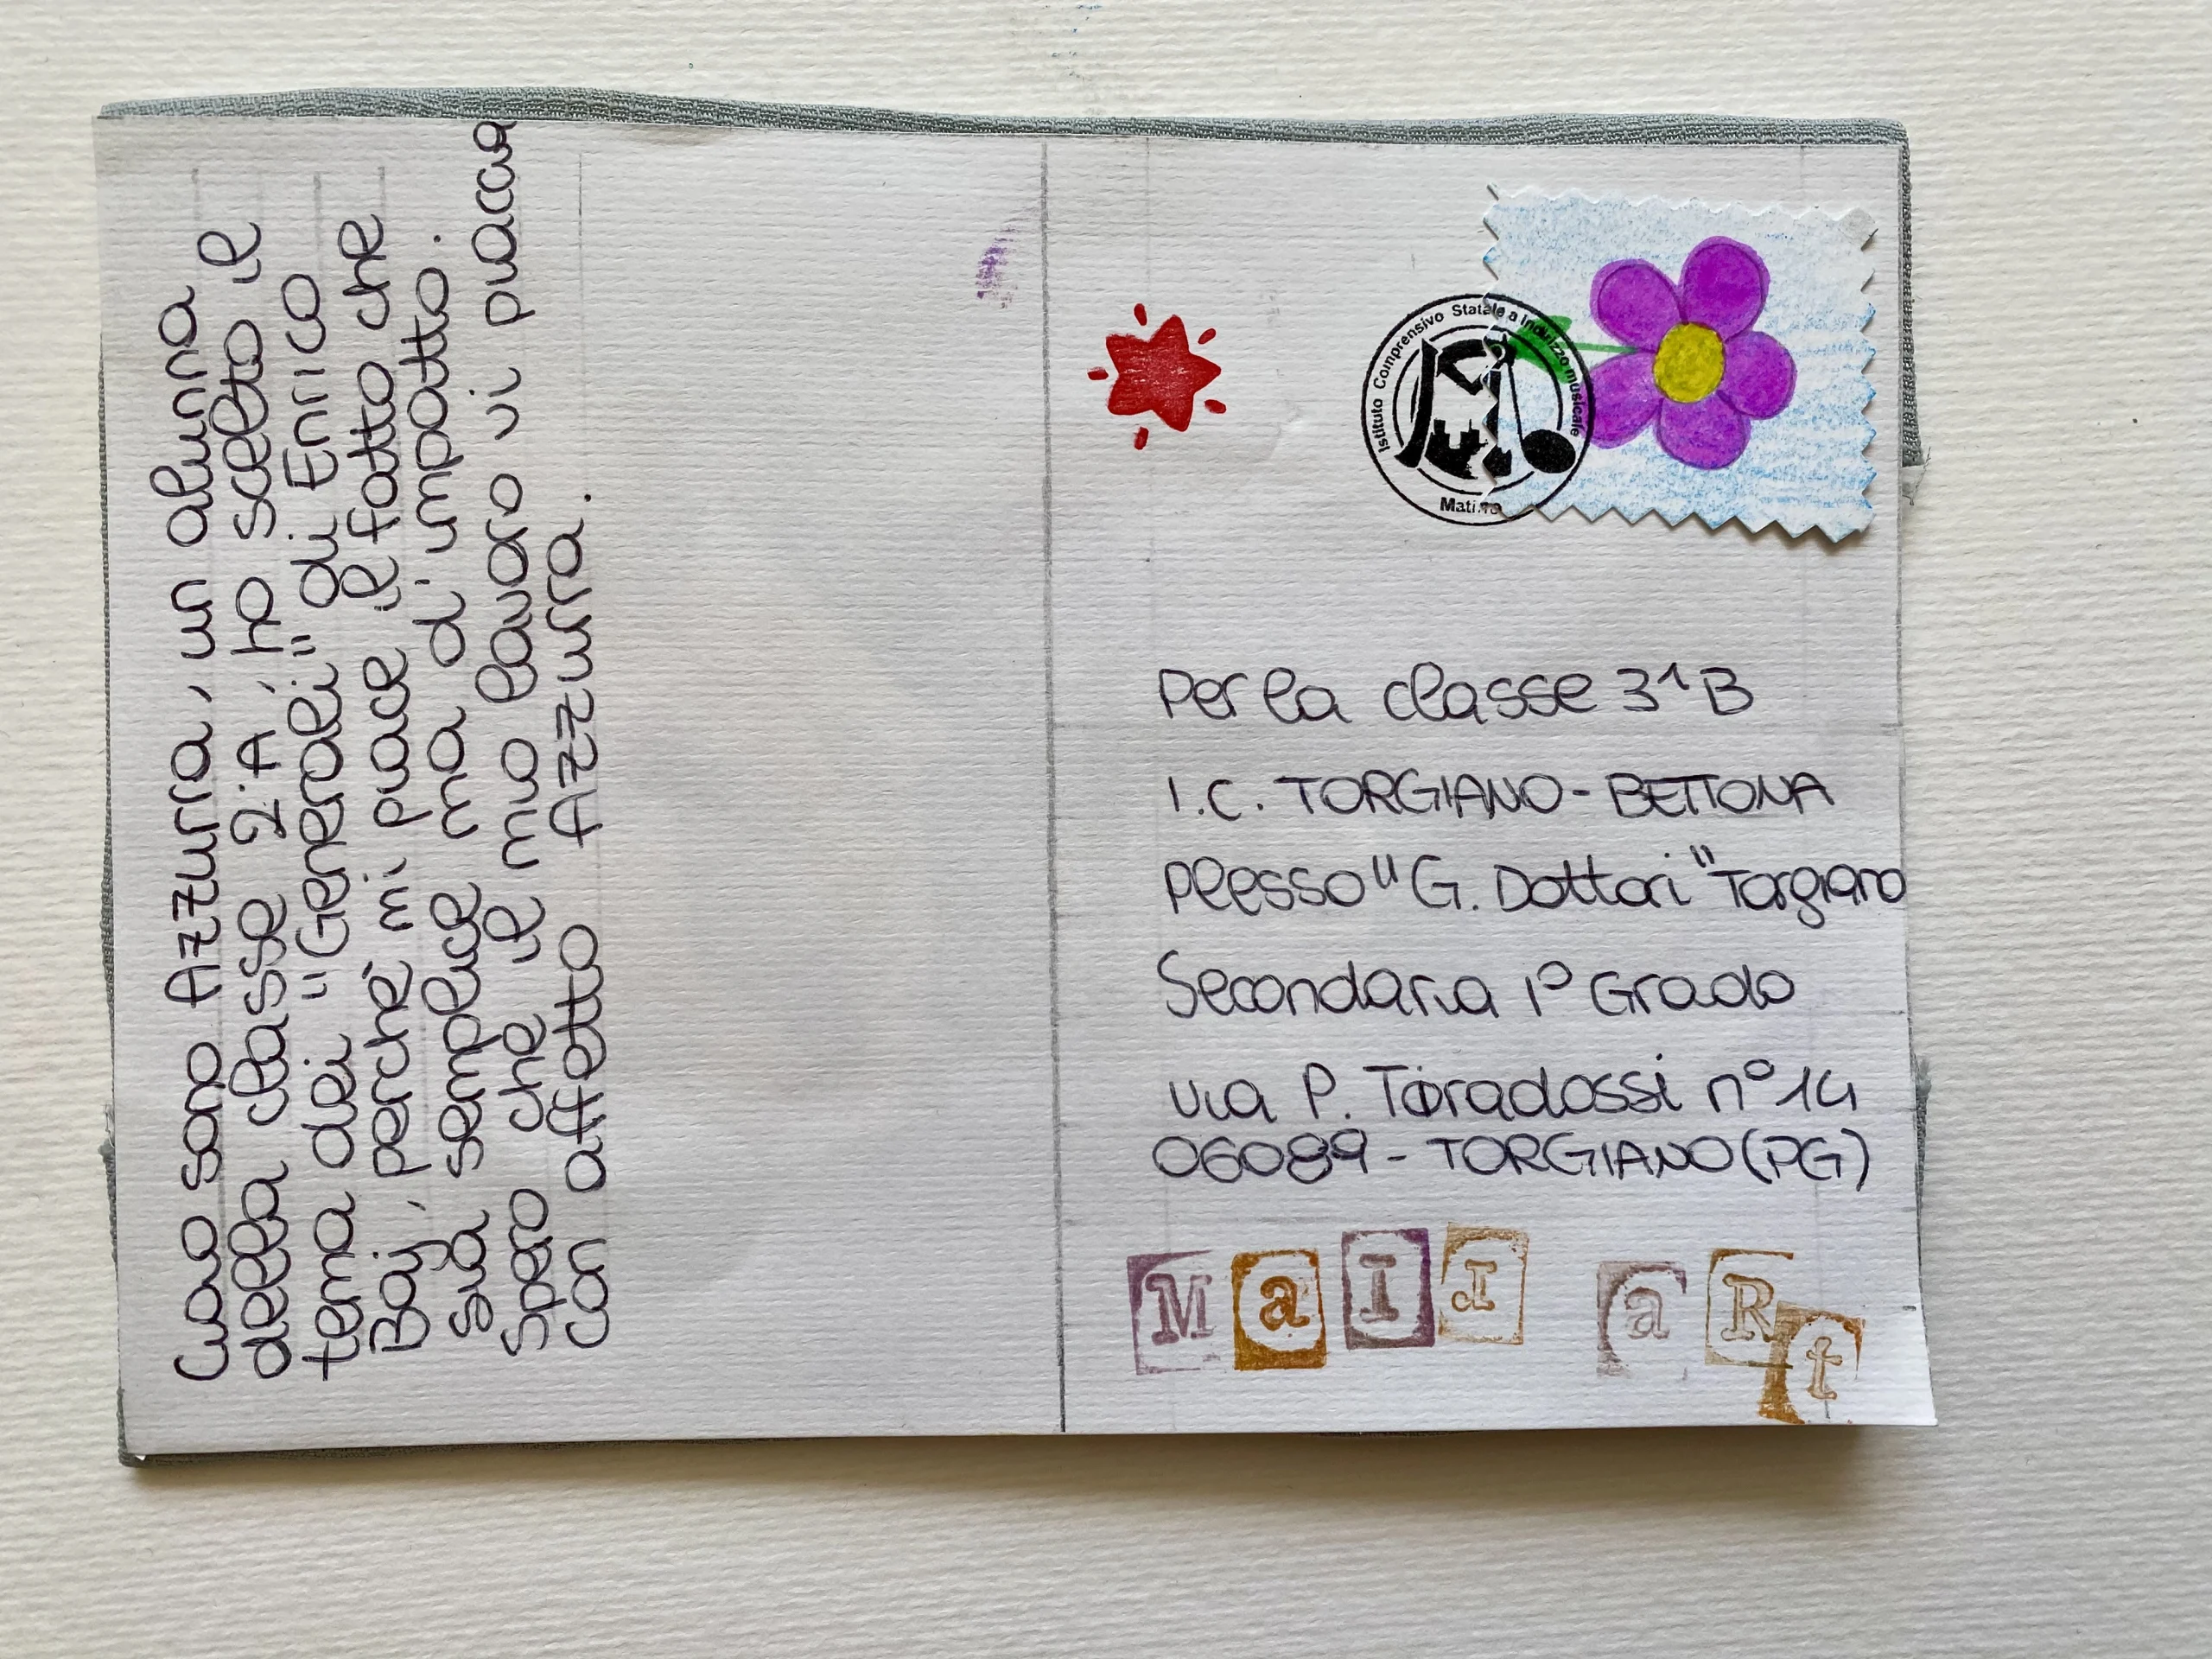 Ciao sono Azzurra, un alunna
della classe 2ªA, ho scelto il
tema dei "Generali" di Enrico
Baj, perché mi piace il fatto che
sia semplice ma d'impatto.
Spero che il mio lavoro vi piaccia
con affetto Azzurra.
Istituto Comprensivo Statale a Indirizzo musicale
Matino
Per la classe 3^B
I.C. TORGIANO-BETTONA
Plesso "G. Dottori" Torgiano
Secondaria 1° Grado
via P. Toradossi n°14
06089-TORGIANO(PG)
MaIl aRt